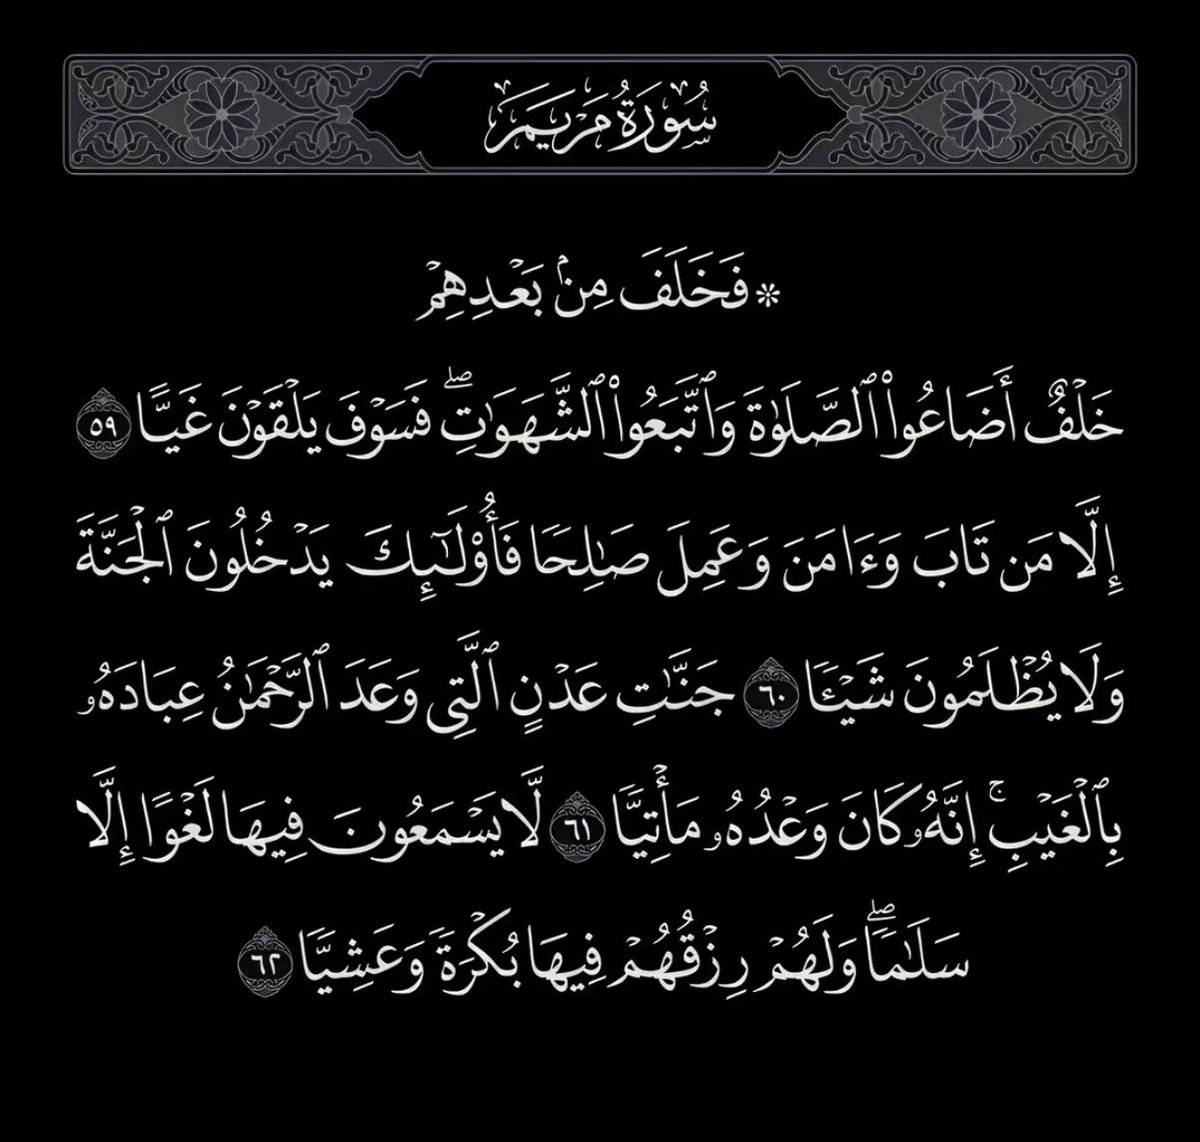 سُورَةُ مَرْيَمَ
۞ فَخَلَفَ مِنۢ بَعْدِهِمْ
خَلْفٌ أَضَاعُوا۟ ٱلصَّلَوٰةَ وَٱتَّبَعُوا۟ ٱلشَّهَوَٰتِ ۖ فَسَوْفَ يَلْقَوْنَ غَيًّا ٥٩
إِلَّا مَن تَابَ وَءَامَنَ وَعَمِلَ صَٰلِحًا فَأُو۟لَٰٓئِكَ يَدْخُلُونَ ٱلْجَنَّةَ
وَلَا يُظْلَمُونَ شَيْـًٔا ٦٠ جَنَّٰتِ عَدْنٍ ٱلَّتِى وَعَدَ ٱلرَّحْمَٰنُ عِبَادَهُۥ
بِٱلْغَيْبِ ۚ إِنَّهُۥ كَانَ وَعْدُهُۥ مَأْتِيًّا ٦١ لَّا يَسْمَعُونَ فِيهَا لَغْوًا إِلَّا
سَلَٰمًا ۖ وَلَهُمْ رِزْقُهُمْ فِيهَا بُكْرَةً وَعَشِيًّا ٦٢